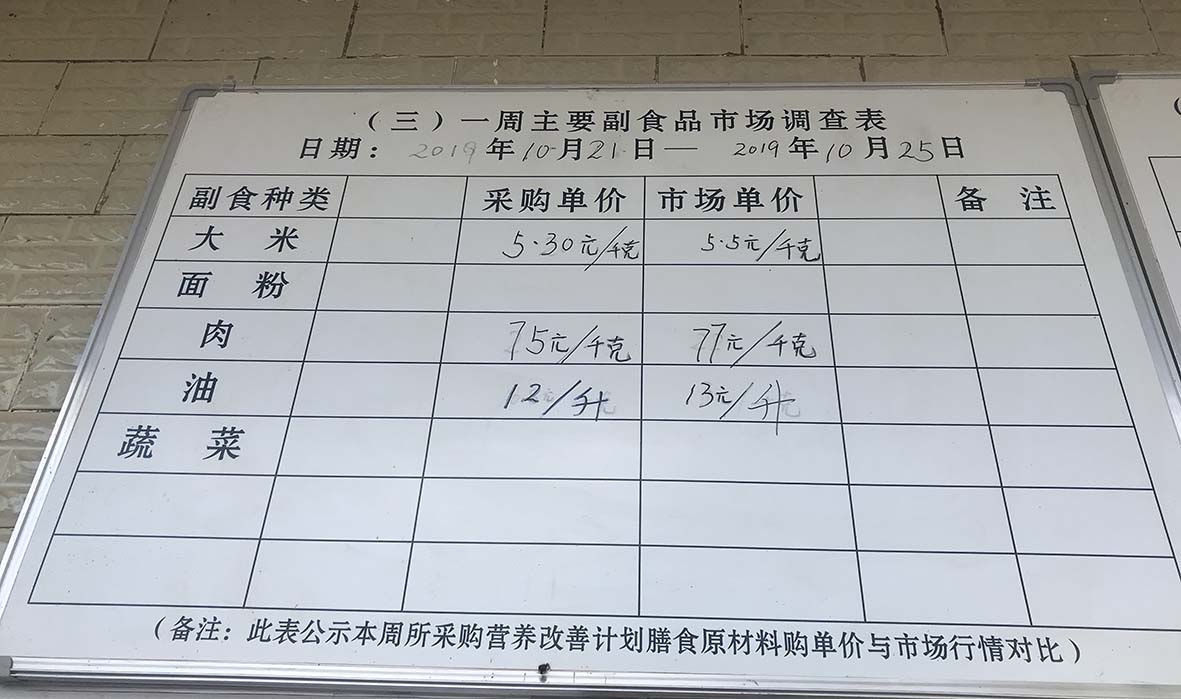 （三）一周主要副食品市场调查表
日期：2019年10月21日— 2019年10月25日
副食种类 采购单价 市场单价 备 注
大 米 5.30元/千克 5.5元/千克
面 粉
肉 75元/千克 77元/千克
油 12/升 13元/升
蔬 菜
（备注：此表公示本周所采购营养改善计划膳食原材料购单价与市场行情对比）